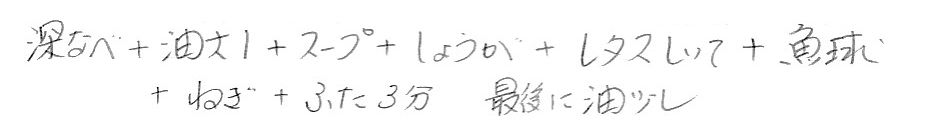 深なべ + 油大1 + スープ + しょうが + レタスしいて + 魚球
+ ねぎ + ふた3分 最後に油少し